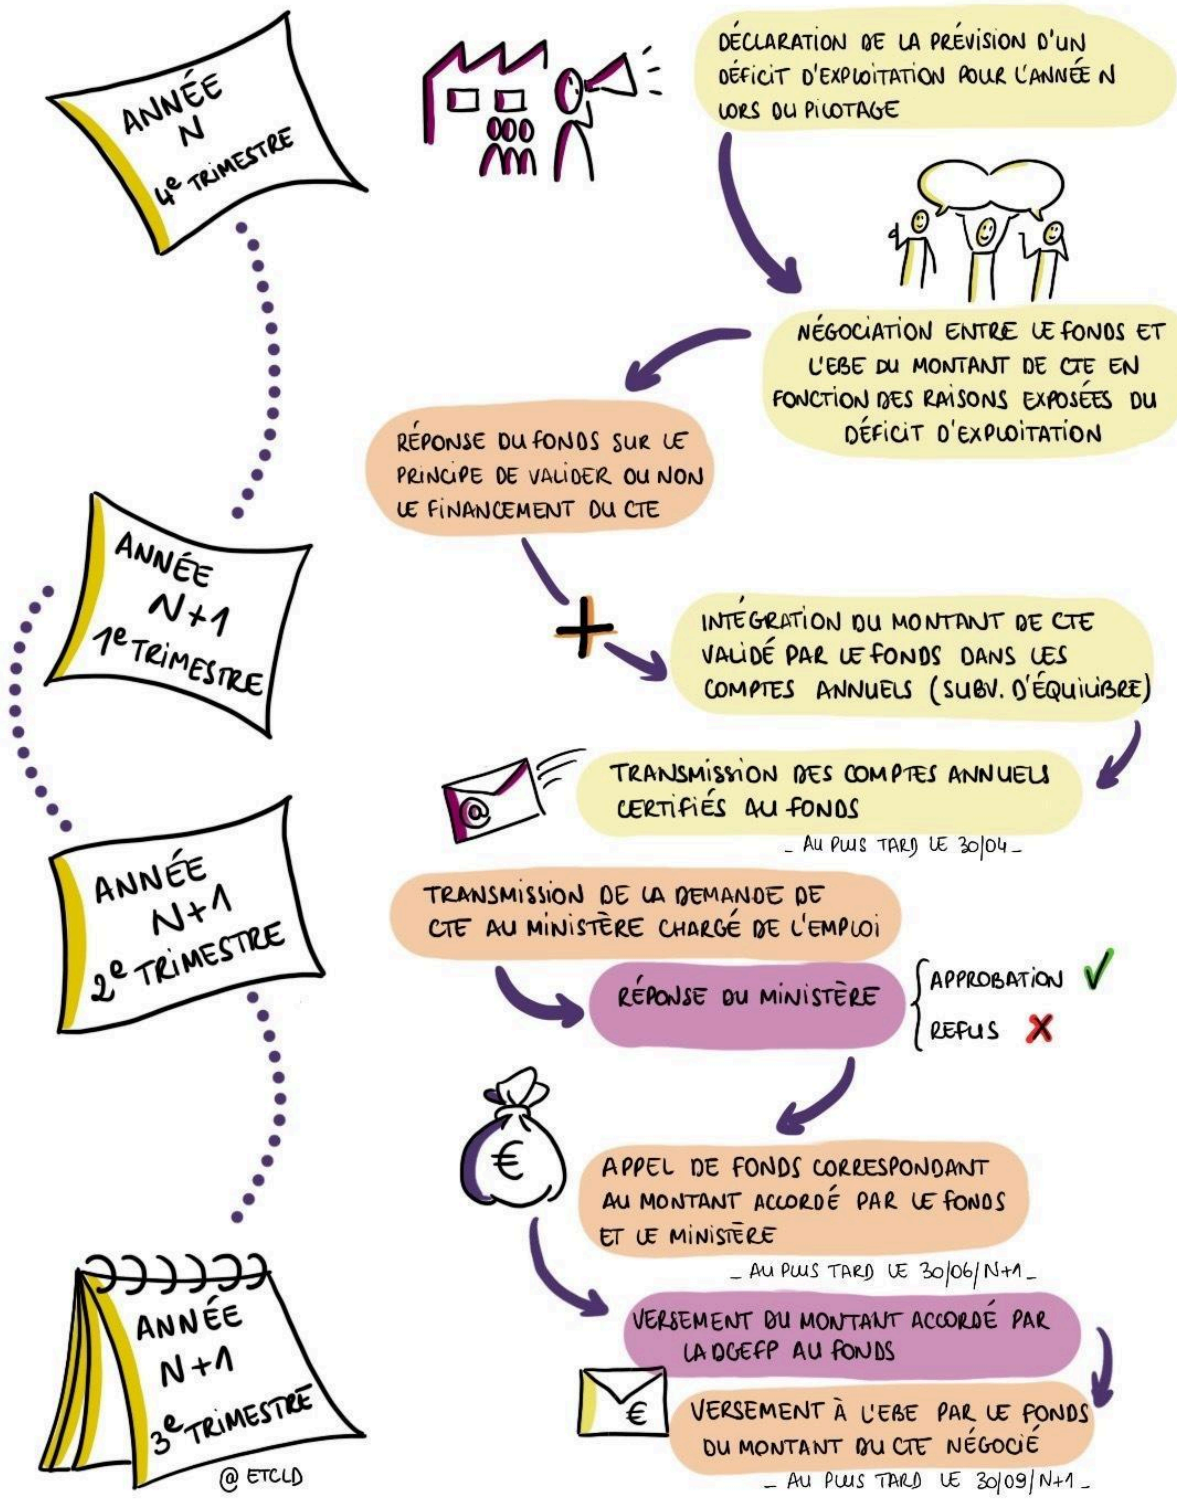 ANNÉE
N
4e TRIMESTRE
DÉCLARATION DE LA PRÉVISION D'UN
DÉFICIT D'EXPLOITATION POUR L'ANNÉE N
LORS DU PILOTAGE
NÉGOCIATION ENTRE LE FONDS ET
L'EBE DU MONTANT DE CTE EN
FONCTION DES RAISONS EXPOSÉES DU
DÉFICIT D'EXPLOITATION
RÉPONSE DU FONDS SUR LE
PRINCIPE DE VALIDER OU NON
LE FINANCEMENT DU CTE
ANNÉE
N+1
1e TRIMESTRE
INTÉGRATION DU MONTANT DE CTE
VALIDÉ PAR LE FONDS DANS LES
COMPTES ANNUELS (SUBV. D'ÉQUILIBRE)
@
TRANSMISSION DES COMPTES ANNUELS
CERTIFIÉS AU FONDS
_ AU PLUS TARD LE 30/04 _
ANNÉE
N+1
2e TRIMESTRE
TRANSMISSION DE LA DEMANDE DE
CTE AU MINISTÈRE CHARGÉ DE L'EMPLOI
RÉPONSE DU MINISTÈRE
APPROBATION
REFUS
€
APPEL DE FONDS CORRESPONDANT
AU MONTANT ACCORDÉ PAR LE FONDS
ET LE MINISTÈRE
_ AU PLUS TARD LE 30/06/N+1 _
ANNÉE
N+1
3e TRIMESTRE
VERSEMENT DU MONTANT ACCORDÉ PAR
LA DGEFP AU FONDS
€
VERSEMENT À L'EBE PAR LE FONDS
DU MONTANT DU CTE NÉGOCIÉ
_ AU PLUS TARD LE 30/09/N+1 _
@ ETCLD